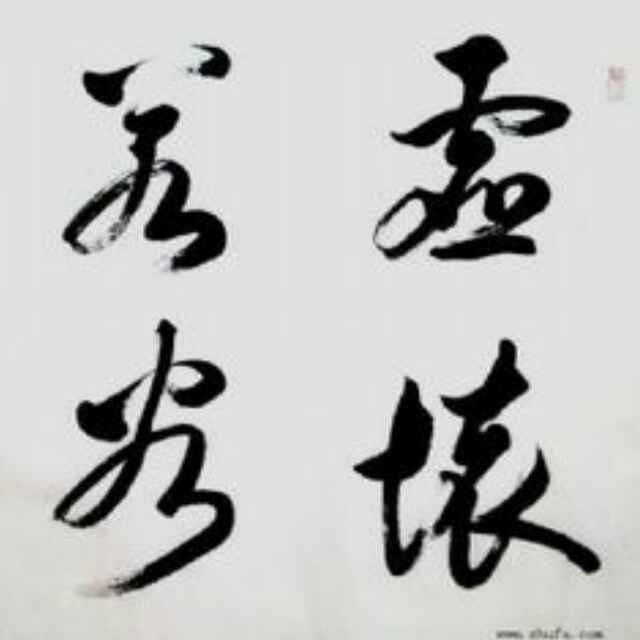 虚懷
若谷
www.shufa.com